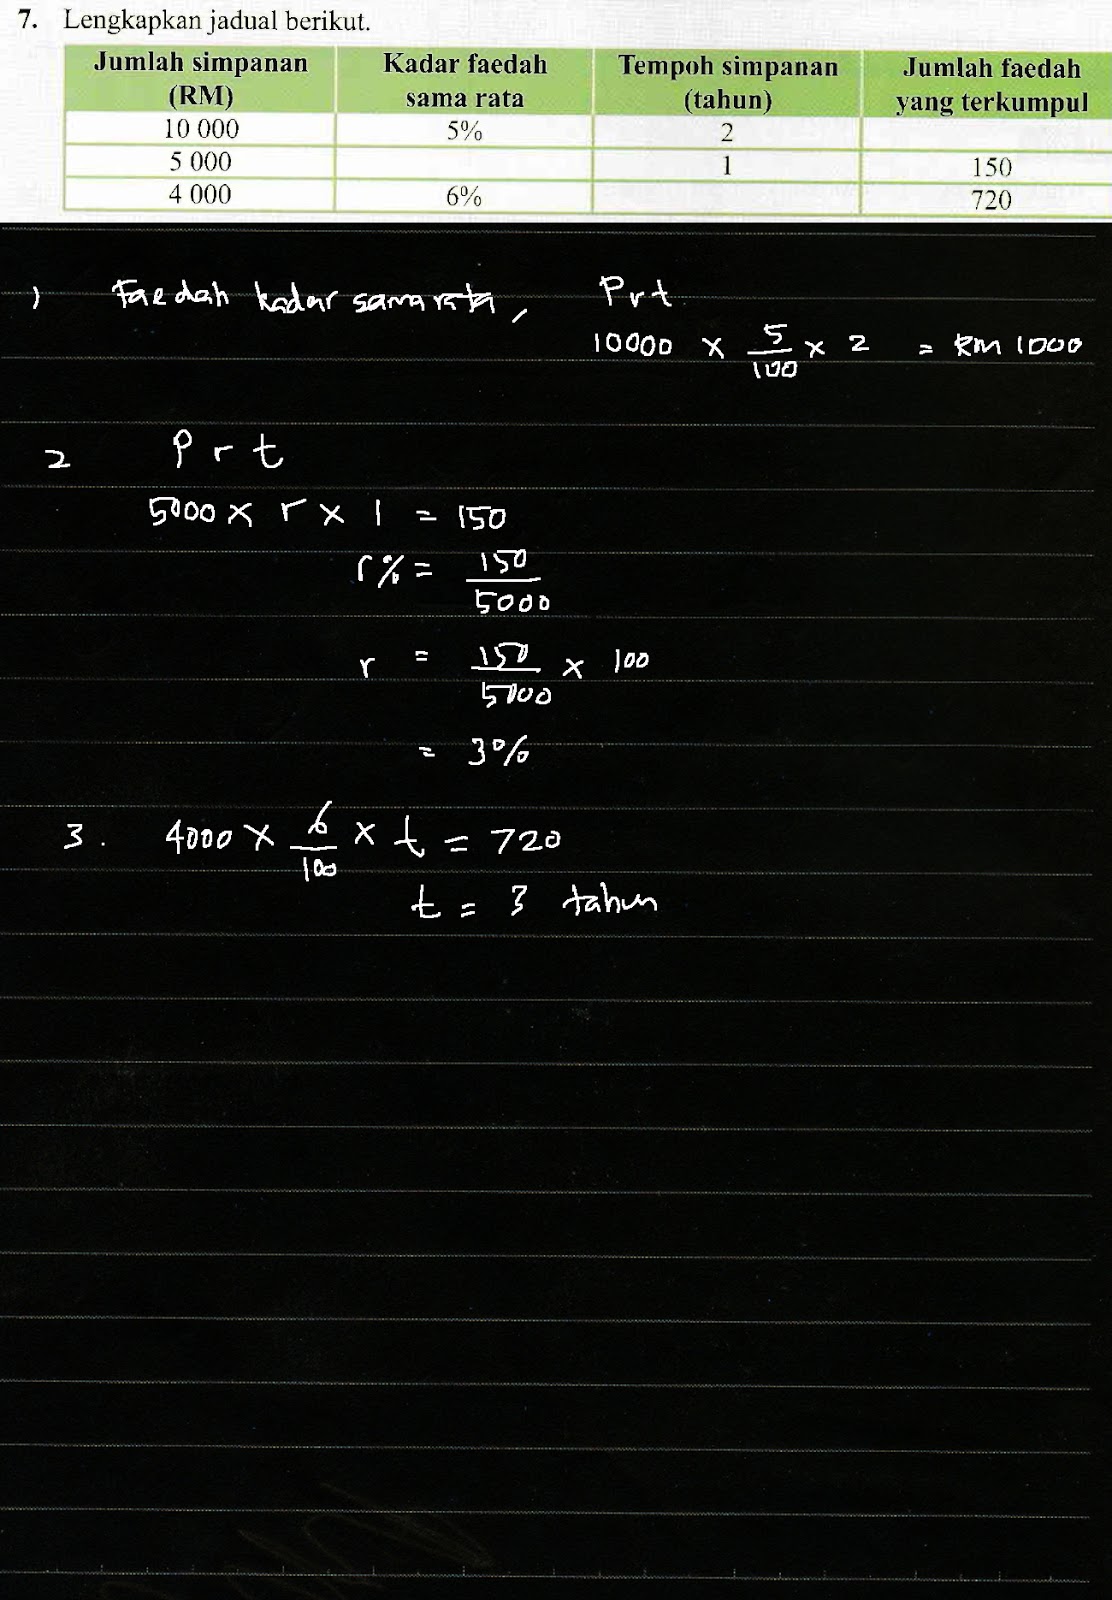 7. Lengkapkan jadual berikut.
Jumlah simpanan (RM) Kadar faedah sama rata Tempoh simpanan (tahun) Jumlah faedah yang terkumpul
10 000 5% 2
5 000 1 150
4 000 6% 720
1 Faedah kadar sama rata, Prt
10000 × 5/100 × 2 = RM 1000
2 Prt
5000 × r × 1 = 150
r% = 150/5000
r = 150/5000 × 100
= 3%
3. 4000 × 6/100 × t = 720
t = 3 tahun